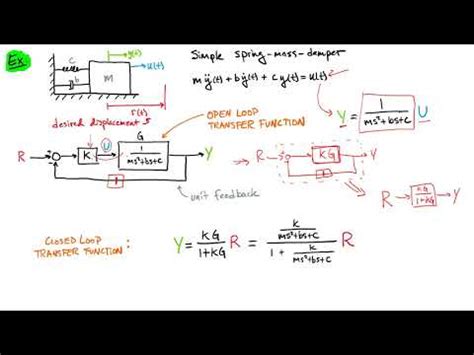 Ex
Simple spring-mass-damper
c
y(t)
b
M
u(t)
mÿ(t) + bẏ(t) + c y(t) = u(t)
r(t)
desired displacement
OPEN LOOP
TRANSFER FUNCTION
Y = 1/(ms²+bs+c) U
R K U G 1/(ms²+bs+c) Y
1
unit feedback
R KG Y
1
R KG/(1+KG) Y
CLOSED LOOP
TRANSFER FUNCTION :
Y = KG/(1+KG) R = (K/(ms²+bs+c))/(1 + K/(ms²+bs+c)) R